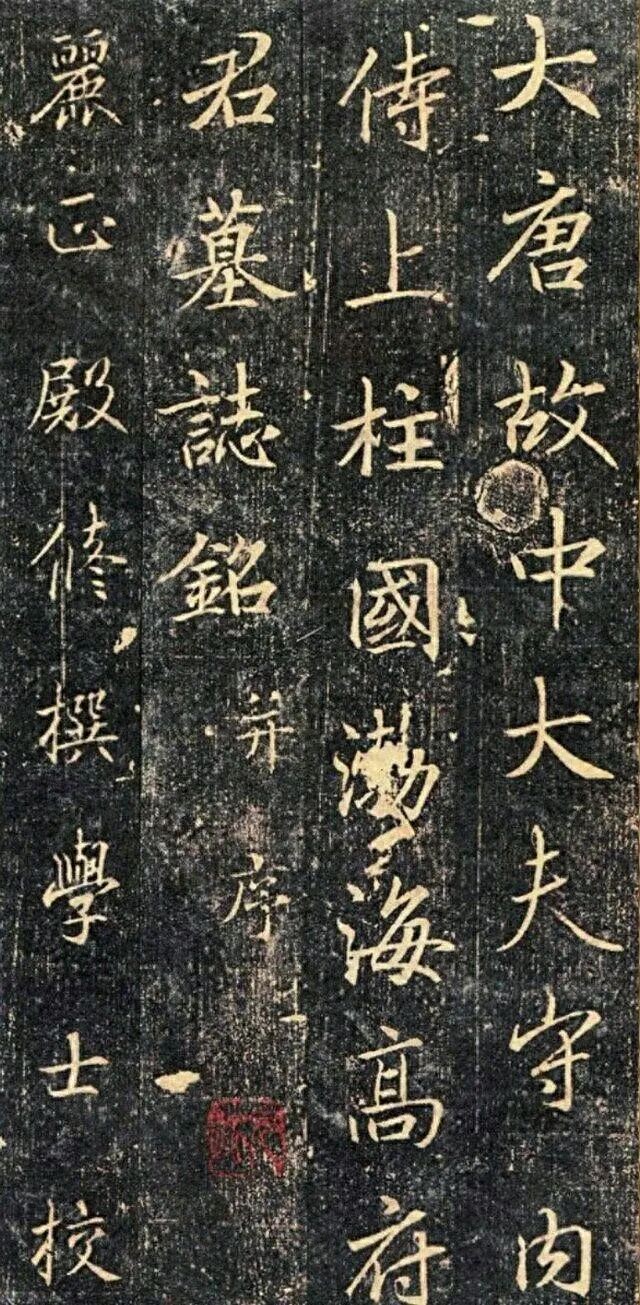 大唐故中大夫守内
侍上柱國渤海高府
君墓誌銘并序
麗正殿修撰學士校